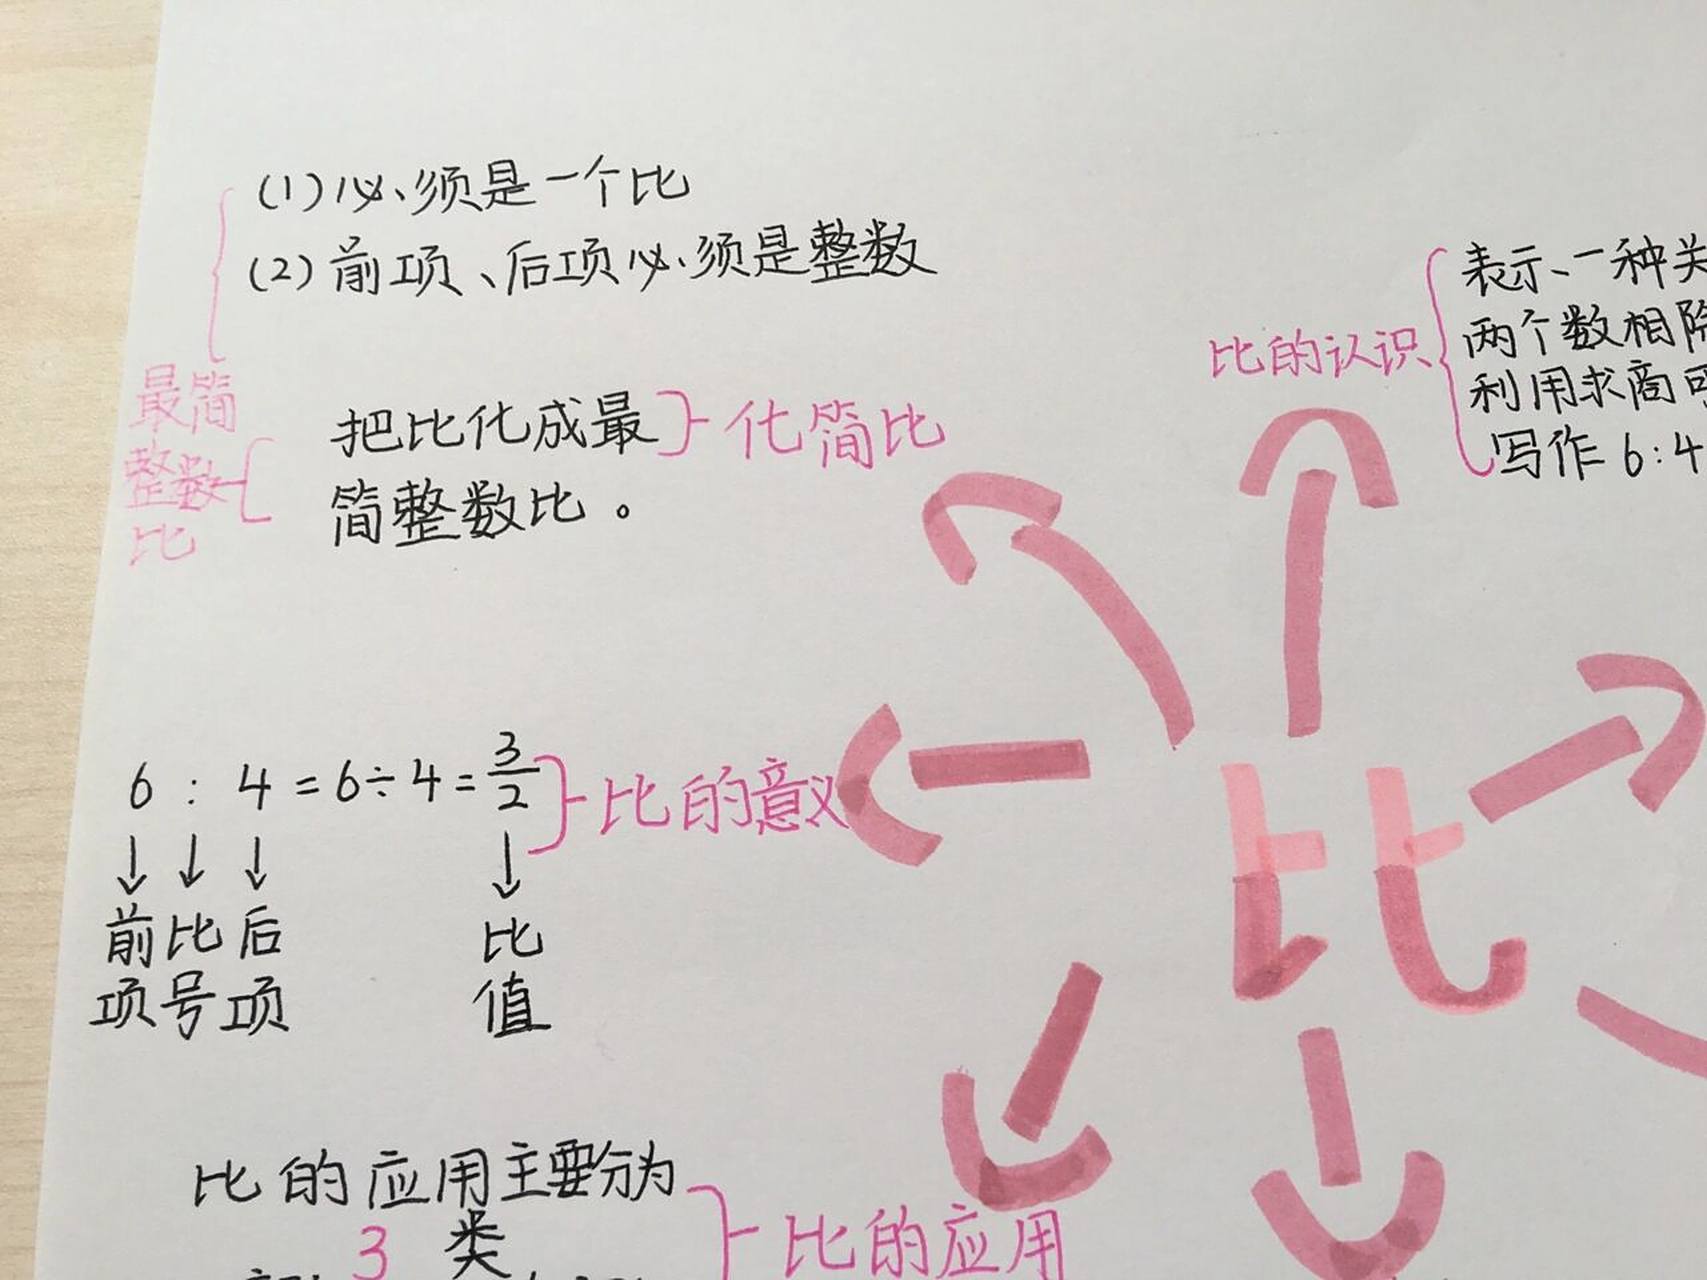 (1)必须是一个比
(2)前项、后项必须是整数
最简
整数
比
把比化成最
简整数比。
化简比
比的认识
表示、一种关
两个数相除
利用求商可
写作6:4
6:4=6÷4=3/2
比的意义
前项
比号
后项
比值
比
比的应用主要分为
3类
比的应用